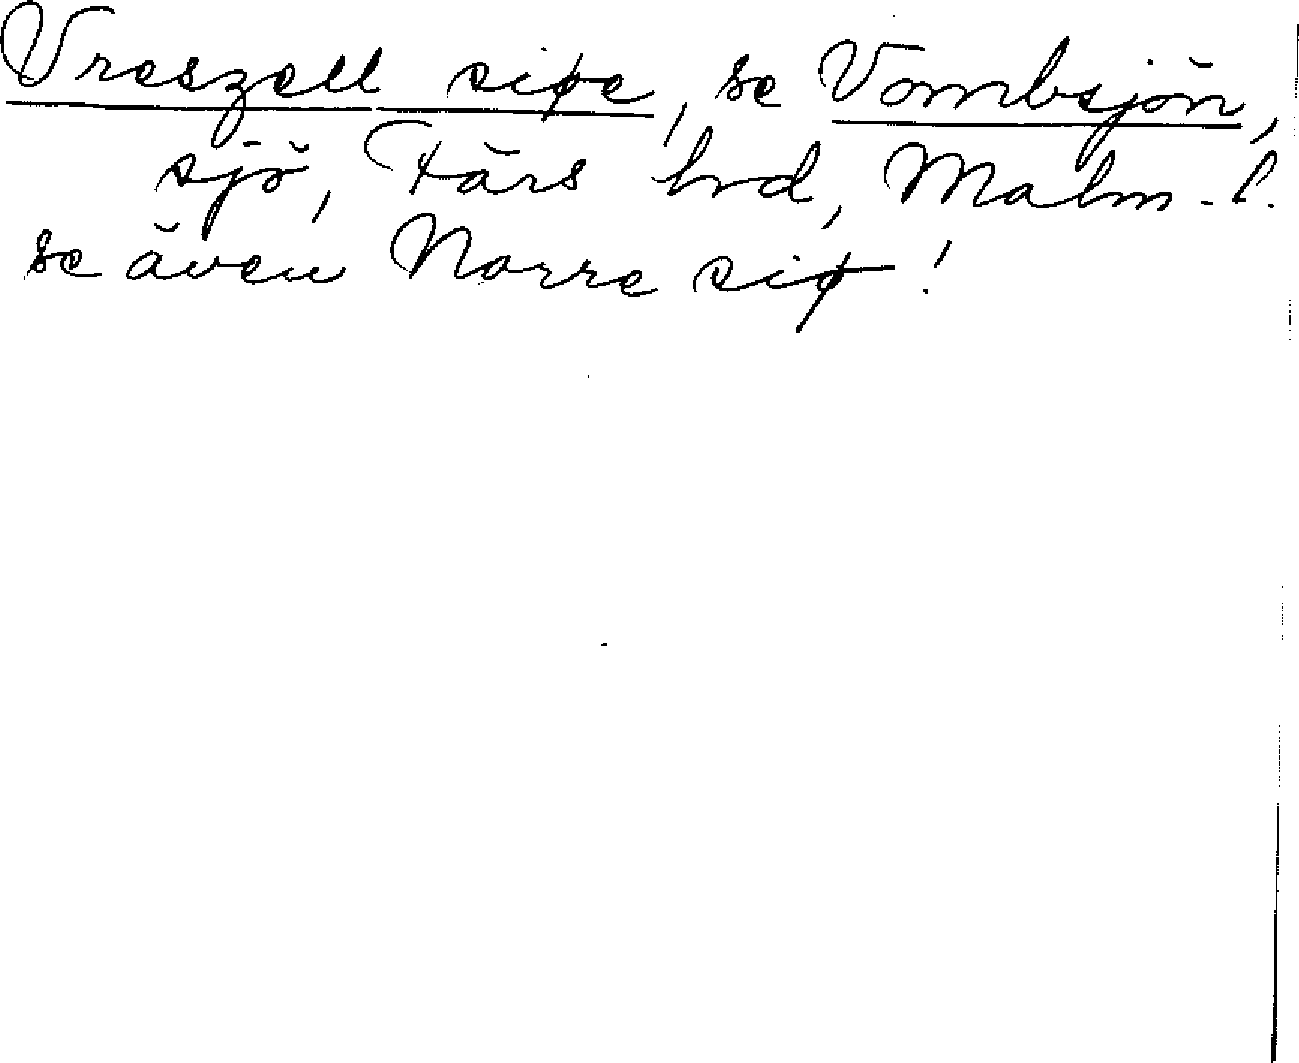 Vreszell siøe, se Vombsjön,
sjö, Färs hrd, Malm. l.
se även Norre siø!